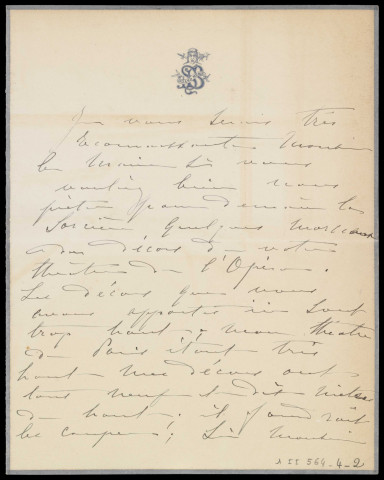 Je vous serais très
reconnaissante Monsieur
le Maire si vous
vouliez bien nous
prêter pour demain la
Sorcière quelques morceaux
des décors de votre
théâtre de l'Opéra.
Les décors que nous
avons apportés ici sont
trop hauts, mon théâtre
de Paris étant très
haut mes décors ont
tous neuf et dix mètres
de haut. il faudrait
les couper!
A 55 564-4-2